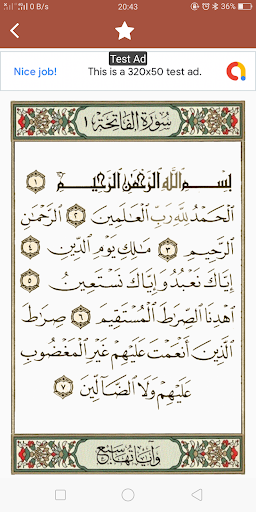 0 B/s 20:43 36%
Test Ad
Nice job! This is a 320x50 test ad.
سورة الفاتحة ١
بسم الله الرحمن الرحيم ١
الحمد لله رب العلمين ٢ الرحمن
الرحيم ٣ ملك يوم الدين ٤
إياك نعبد وإياك نستعين ٥
اهدنا الصراط المستقيم ٦ صراط
الذين أنعمت عليهم غير المغضوب
عليهم ولا الضالين ٧
وآياتها سبع